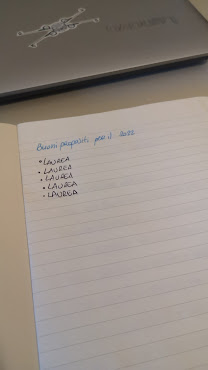 Buoni propositi per il 2022
• LAUREA
• LAUREA
• LAUREA
• LAUREA
• LAUREA